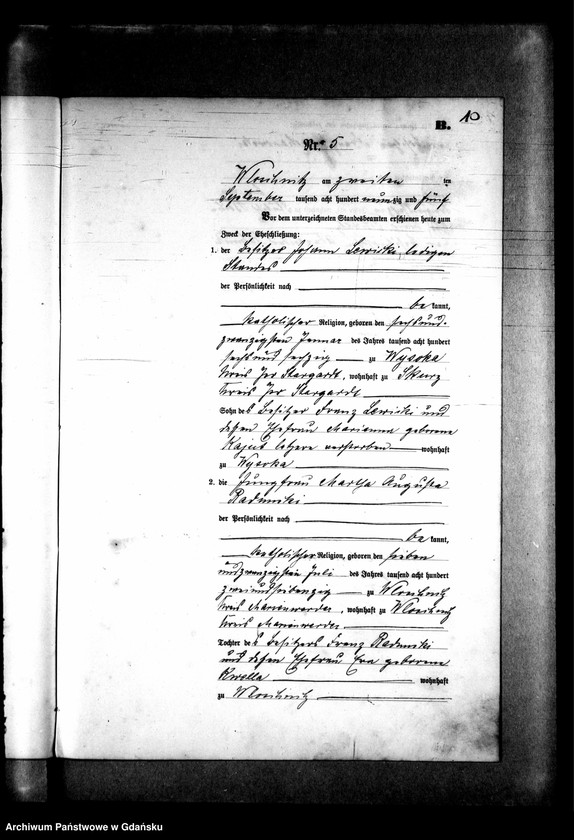 B. 10
Nr. 5
am zweiten ten
September tausend acht hundert neunzig und fünf
Vor dem unterzeichneten Standesbeamten erschienen heute zum
Zweck der Eheschließung:
1. der Besitzer Johann Lewicki, ledigen
Standes
der Persönlichkeit nach
be kannt,
katholischer Religion, geboren den sechsund-
zwanzigsten Januar des Jahres tausend acht hundert
sechsundsechzig zu Wysoka
Kreis Pr Stargardt, wohnhaft zu Skurz
Kreis Pr Stargardt
Sohn des Besitzer Franz Lewicki und
dessen Ehefrau Marianna geborene
letztere verstorben wohnhaft
zu Wysoka
2. die Jungfrau Martha Augusta
der Persönlichkeit nach
be kannt,
katholischer Religion, geboren den sieben
undzwanzigsten Juli des Jahres tausend acht hundert
zweiundsiebenzig zu
Kreis Marienwerder, wohnhaft zu
Kreis Marienwerder
Tochter des Besitzers Franz
und dessen Ehefrau Eva geborene
Kwella wohnhaft
zu
Archiwum Państwowe w Gdańsku